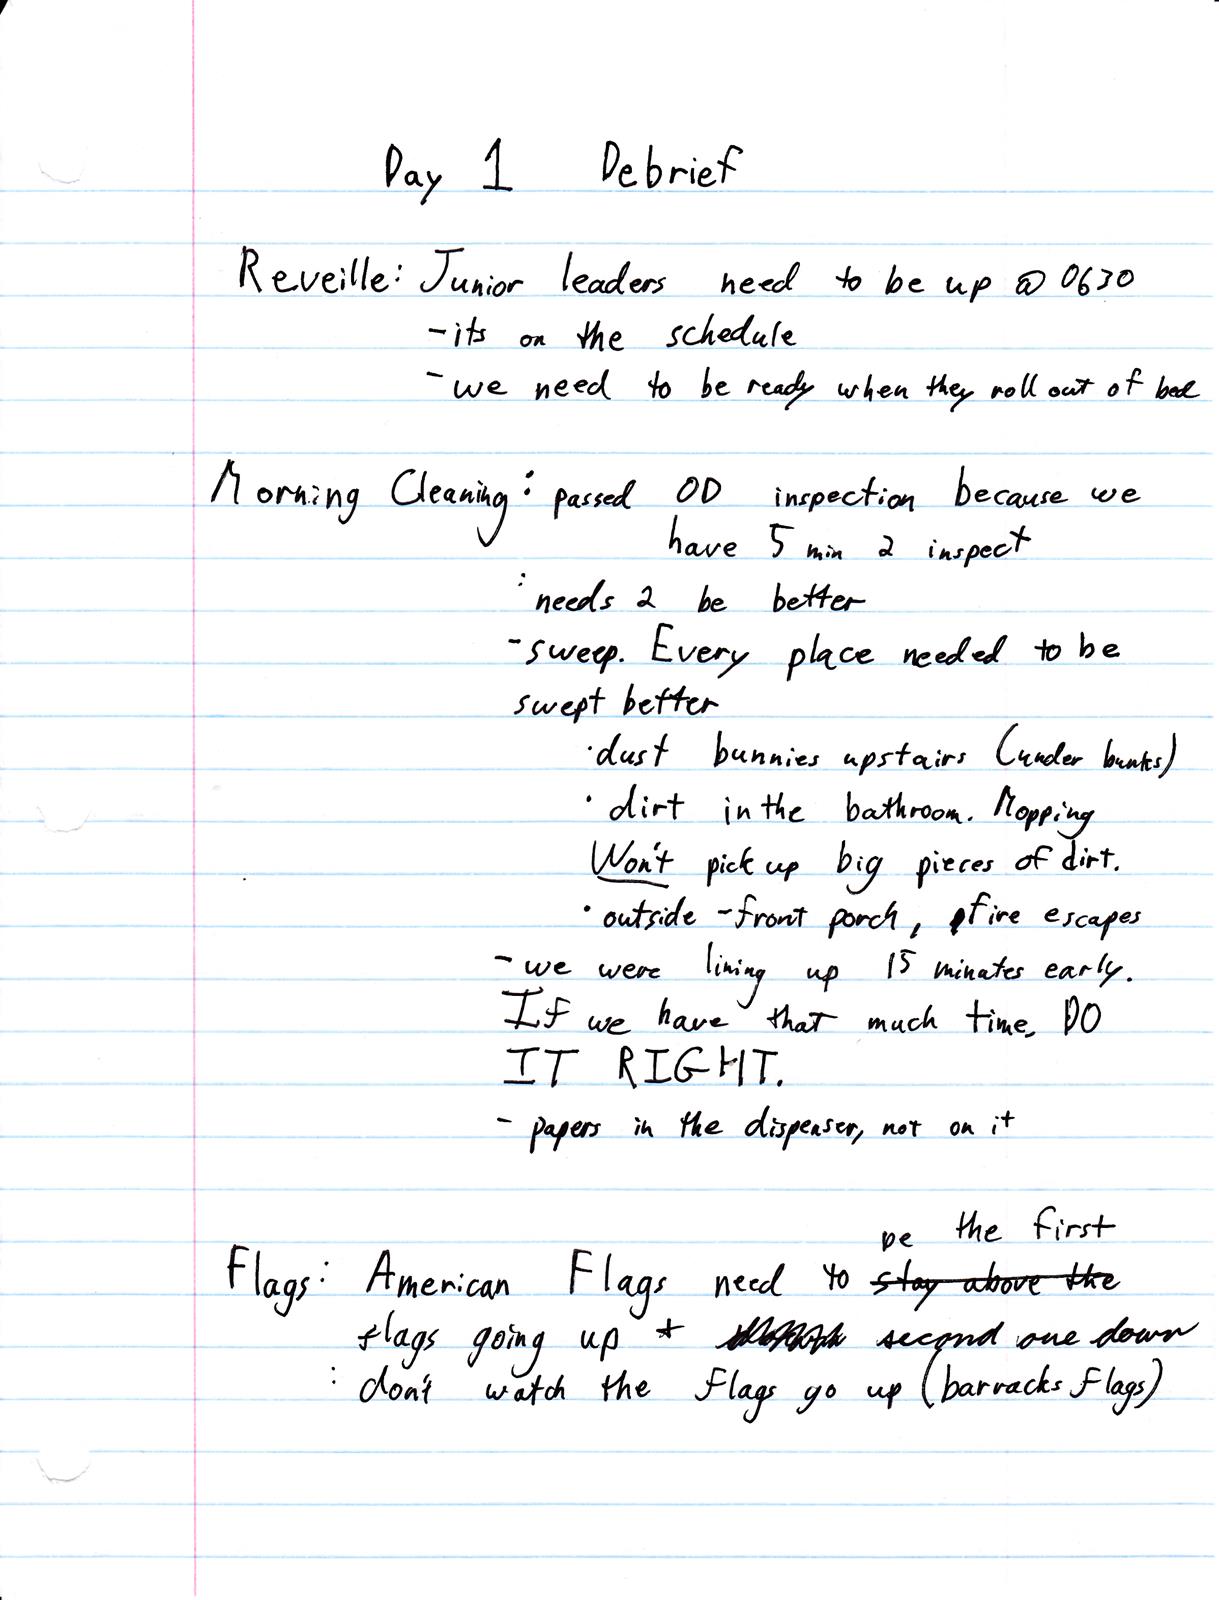 Day 1 Debrief
Reveille: Junior leaders need to be up @ 0630
-its on the schedule
-we need to be ready when they roll out of bed
Morning Cleaning: passed OD inspection because we
have 5 min 2 inspect
: needs 2 be better
-sweep. Every place needed to be
swept better
·dust bunnies upstairs (under bunks)
· dirt in the bathroom. Mopping
Won't pick up big pieces of dirt.
· outside -front porch, fire escapes
- we were lining up 15 minutes early.
If we have that much time, DO
IT RIGHT.
- papers in the dispenser, not on it
be the first
Flags: American Flags need to stay above the
flags going up + second one down
: don't watch the flags go up (barracks flags)